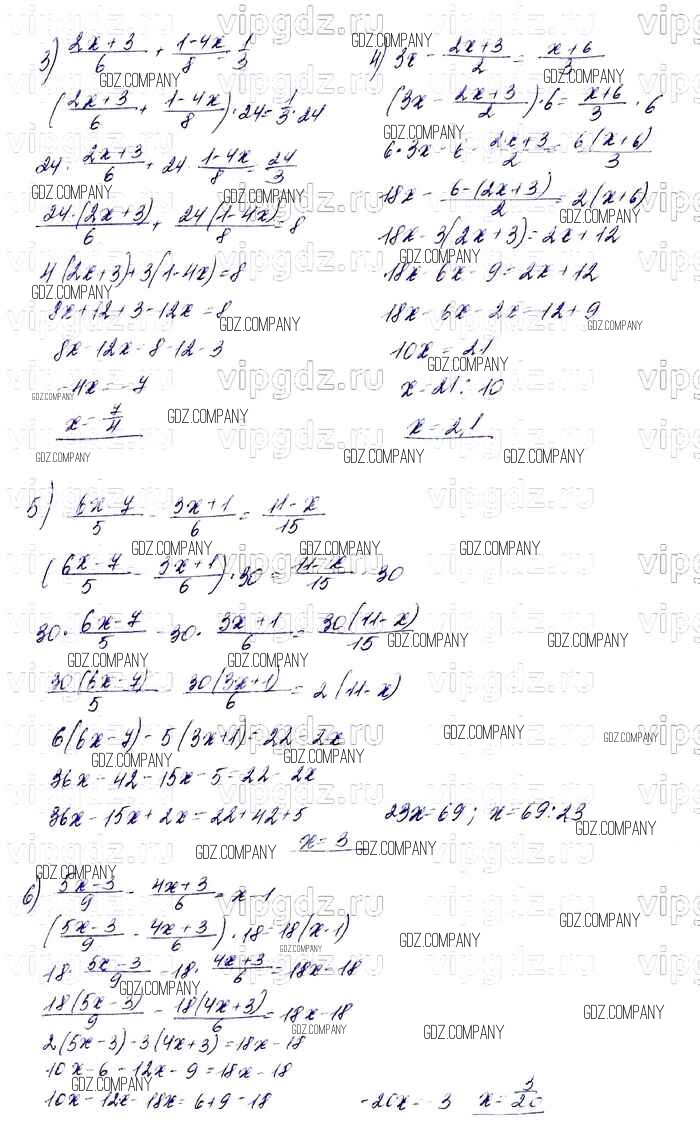 3) (2x+3)/6 + (1-4x)/8 = 1/3
((2x+3)/6 + (1-4x)/8)·24 = 1/3·24
24·(2x+3)/6 + 24·(1-4x)/8 = 24/3
24·(2x+3)/6 + 24(1-4x)/8 = 8
4(2x+3)+3(1-4x)=8
8x+12+3-12x=8
8x-12x=8-12-3
-4x=-7
x=7/4
4) 3x - (2x+3)/2 = (x+6)/3
(3x - (2x+3)/2)·6 = (x+6)/3·6
6·3x - 6·(2x+3)/2 = 6(x+6)/3
18x - 6·(2x+3)/2 = 2(x+6)
18x-3(2x+3)=2x+12
18x-6x-9=2x+12
18x-6x-2x=12+9
10x=21
x=21:10
x=2,1
5) (6x-7)/5 - (3x+1)/6 = (11-x)/15
((6x-7)/5 - (3x+1)/6)·30 = (11-x)/15·30
30·(6x-7)/5 - 30·(3x+1)/6 = 30(11-x)/15
30(6x-7)/5 - 30(3x+1)/6 = 2(11-x)
6(6x-7)-5(3x+1)=22-2x
36x-42-15x-5=22-2x
36x-15x+2x=22+42+5 23x=69; x=69:23
x=3
6) (5x-3)/9 - (4x+3)/6 = x-1
((5x-3)/9 - (4x+3)/6)·18=18(x-1)
18·(5x-3)/9 - 18·(4x+3)/6 = 18x-18
18(5x-3)/9 - 18(4x+3)/6 = 18x-18
2(5x-3)-3(4x+3)=18x-18
10x-6-12x-9=18x-18
10x-12x-18x=6+9-18 -20x=-3 x=3/20
GDZ.COMPANY
vipgdz.ru